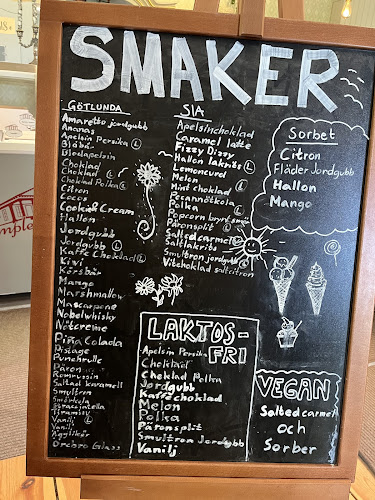 SMAKER
GÖTLUNDA
Amaretto jordgubb
Ananas
Apelsin Persika Ⓛ
Blåbär
Blodapelsin
Choklad
Choklad Ⓛ
Choklad Polka Ⓛ
Citron
Cocos
Cookie Cream
Hallon
Jordgubb
Jordgubb Ⓛ
Kaffe Choklad Ⓛ
Kiwi
Körsbär
Mango
Marshmallow
Mascarpone
Nobelwhisky
Nötcreme
Piña Colada
Pistage
Punchrulle
Päron
Romrussin
Saltad karamell
Smultron
Smörkola
Straciatella
Tiramisu
Vanilj Ⓛ
Vanilj
Ägglikör
Örebro Glass
SIA
Apelsinchoklad
Caramel latte
Fizzy Dizzy
Hallon lakrits Ⓛ
Lemoncurd
Melon
Mint choklad
Pecannötkola
Polka
Popcorn brynt smör
Päronsplit Ⓛ
Salted caramel
Saltlakrits
Smultron jordgubb Ⓛ
Vitchoklad saltcitron
Sorbet
Citron
Fläder Jordgubb
Hallon
Mango
LAKTOS-
FRI
Apelsin Persika
Choklad
Choklad Polka
Jordgubb
Kaffechoklad
Melon
Polka
Päronsplit
Smultron Jordgubb
Vanilj
VEGAN
Salted caramel
och
Sorber
mple